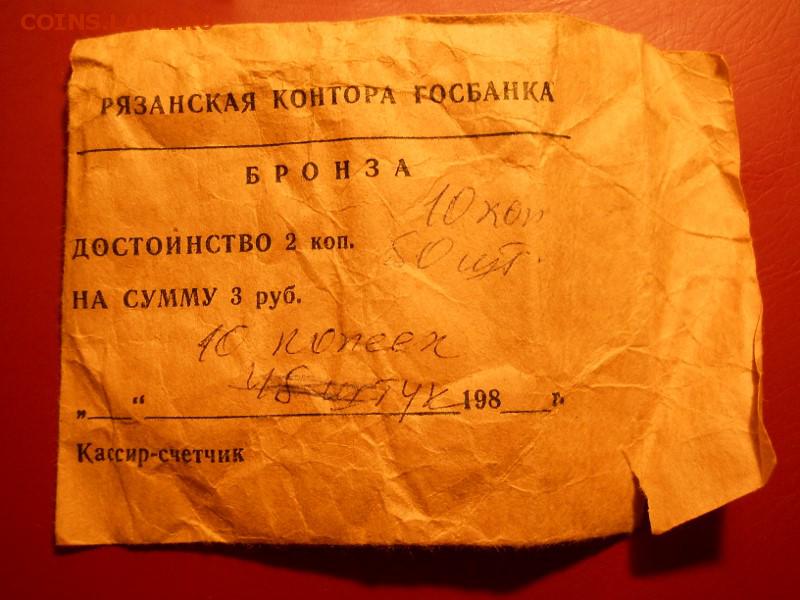 COINS.LAVE.RU
РЯЗАНСКАЯ КОНТОРА ГОСБАНКА
БРОНЗА
10 коп
ДОСТОИНСТВО 2 коп.
50 шт.
НА СУММУ 3 руб.
10 копеек
штук
„ “ 198 г.
Кассир-счетчик